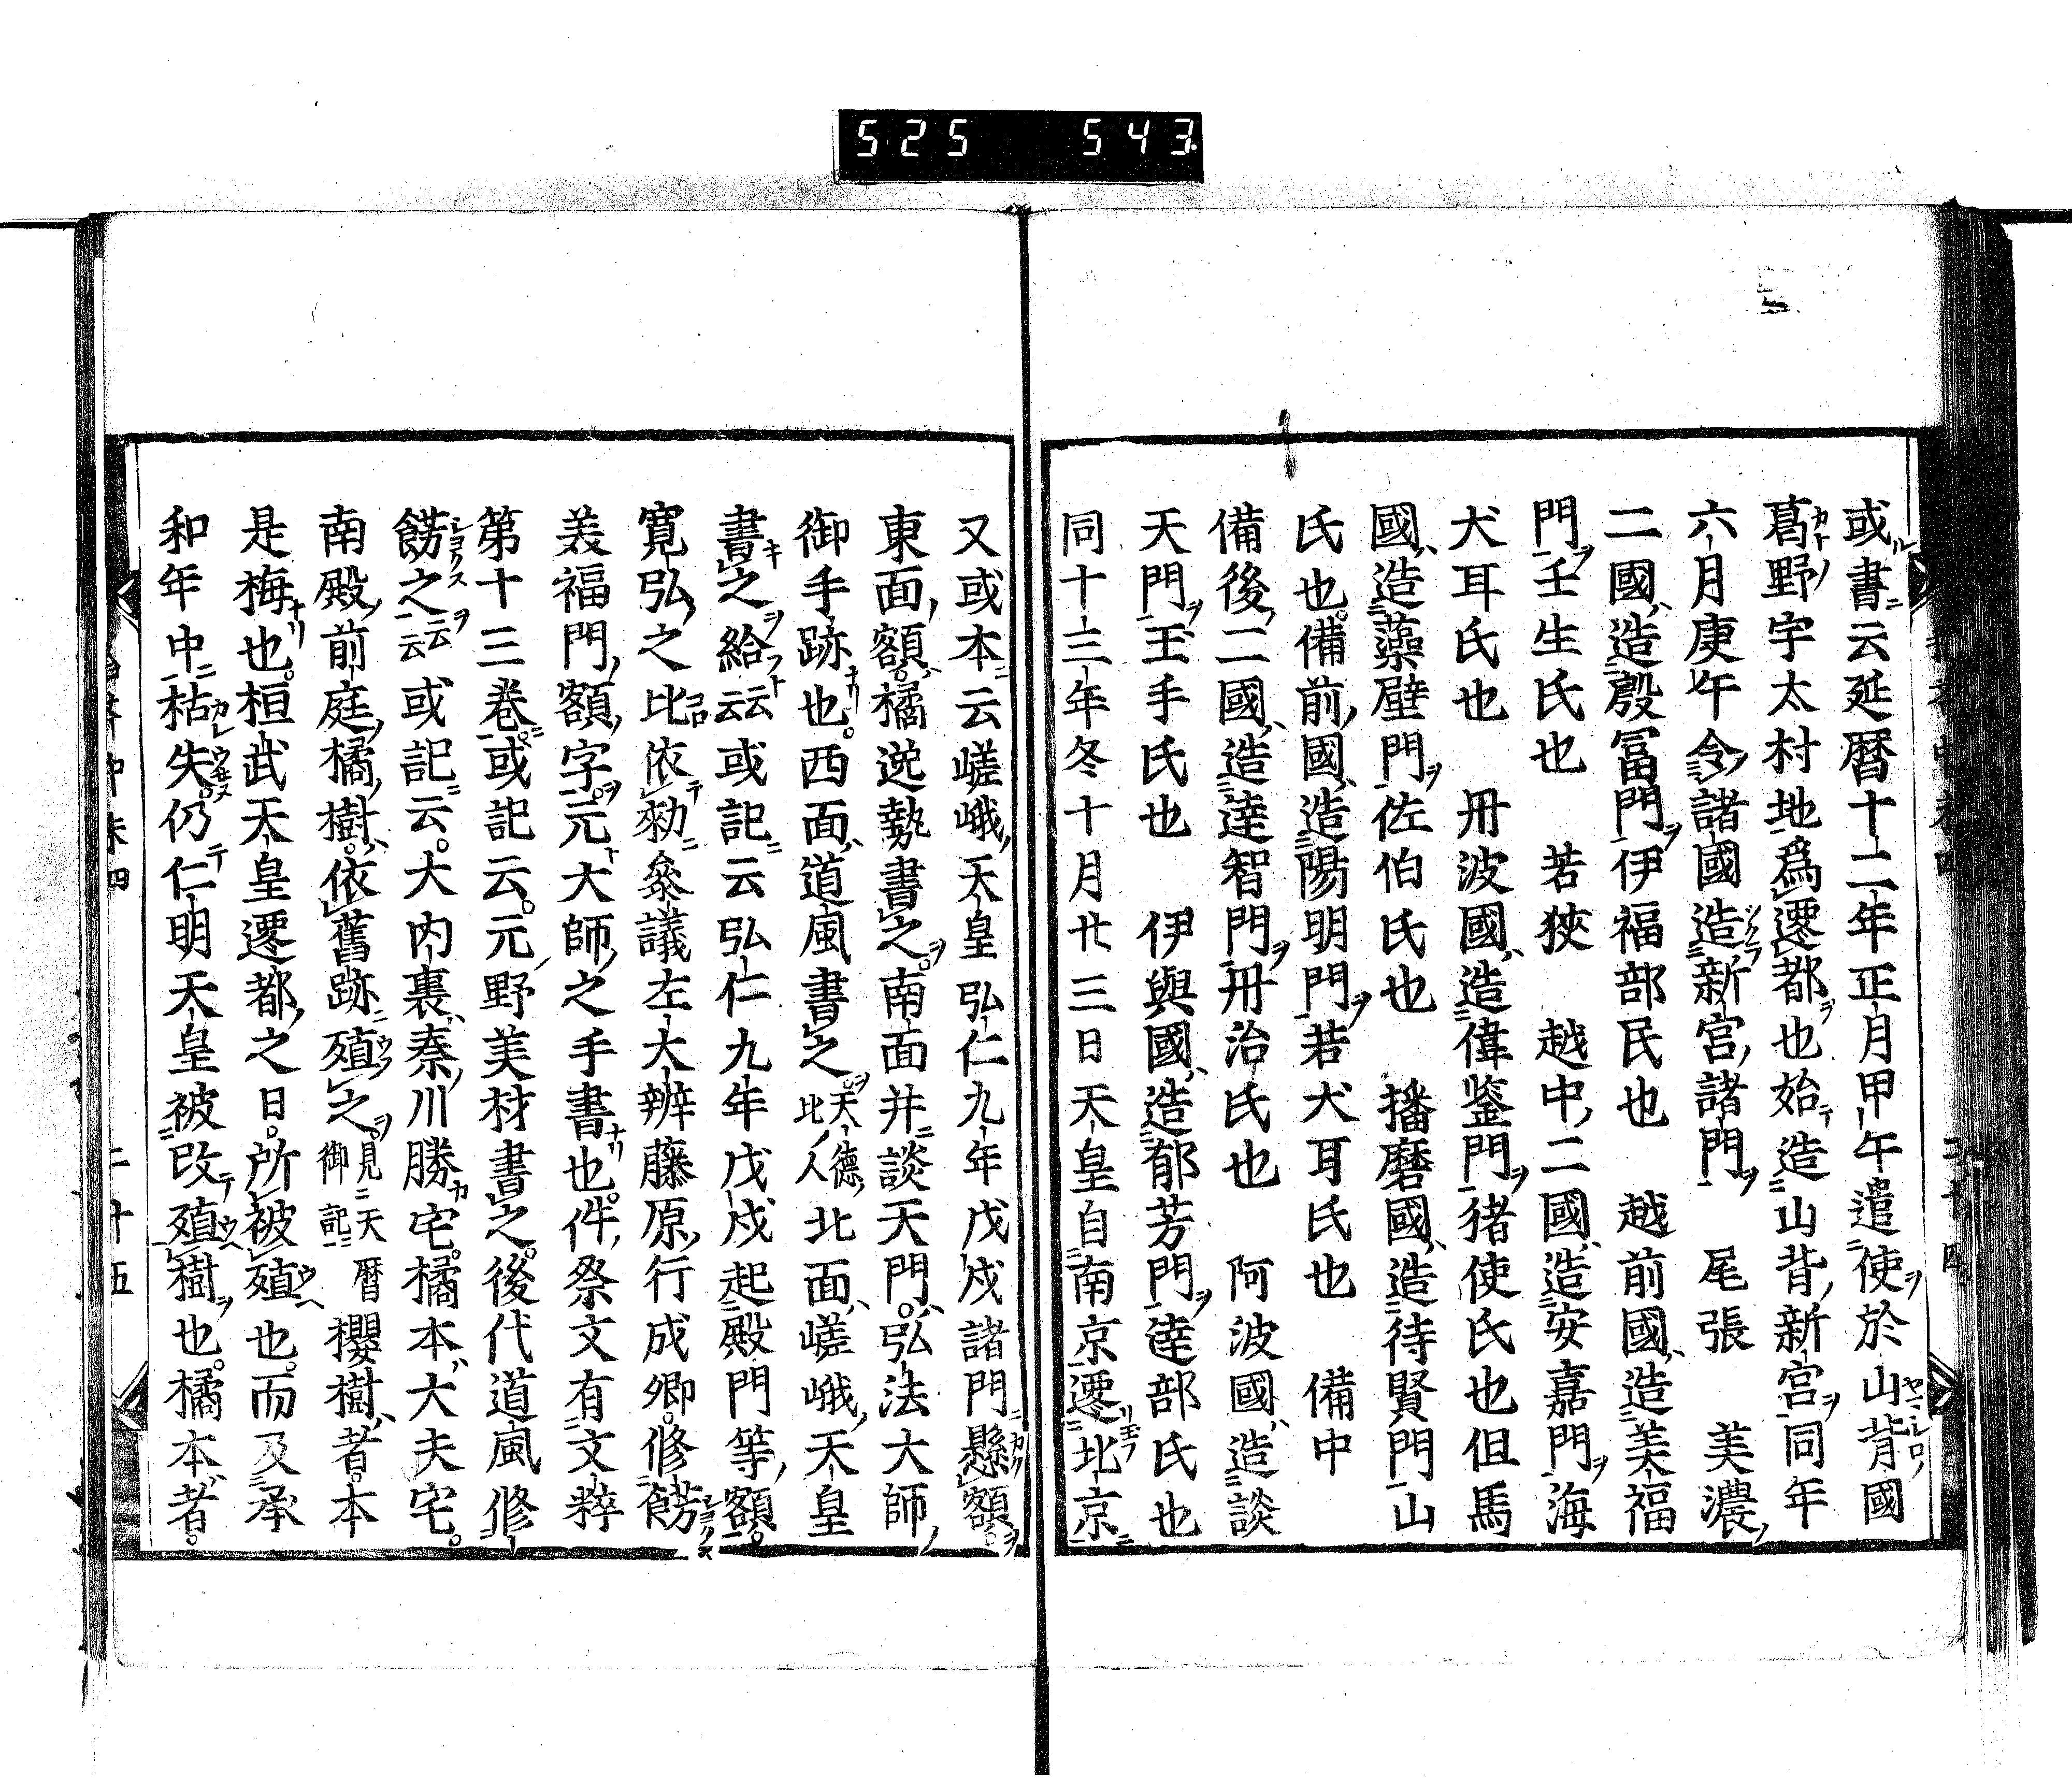 525 543
或書云延暦十二年正月甲午遣使於山背國
葛野宇太村地爲遷都也始造山背新宮同年
六月庚午令諸國造新宮諸門 尾張 美濃
二國造殷冨門伊福部民也 越前國造美福
門壬生氏也 若狹 越中二國造安嘉門海
犬耳氏也 丹波國造偉鋻門猪使氏也但馬
國造藻壁門佐伯氏也 播磨國造待賢門山
氏也備前國造陽明門若犬耳氏也 備中
備後二國造逹智門丹治氏也 阿波國造談
天門玉手氏也 伊與國造郁芳門逹部氏也
同十三年冬十月廿三日天皇自南京遷北京
又或本云嵯峨天皇弘仁九年戊戍諸門懸額
東面額橘逸勢書之南面并談天門弘法大師
御手跡也西面道風書之天德比人北面嵯峨天皇
書之給云云或記云弘仁九年戊戍起殿門等額
寛弘之比依勑叅議左大辨藤原行成卿修餝
美福門額字元大師之手書也件祭文有文粹
第十三卷或記云元野美材書之後代道風修
餝之云云或記云大内裏秦川勝宅橘本大夫宅
南殿前庭橘樹依舊跡殖之見天暦御記櫻樹者本
是梅也桓武天皇遷都之日所被殖也而及承
和年中枯失仍仁明天皇被改殖樹也橘本者
二十五